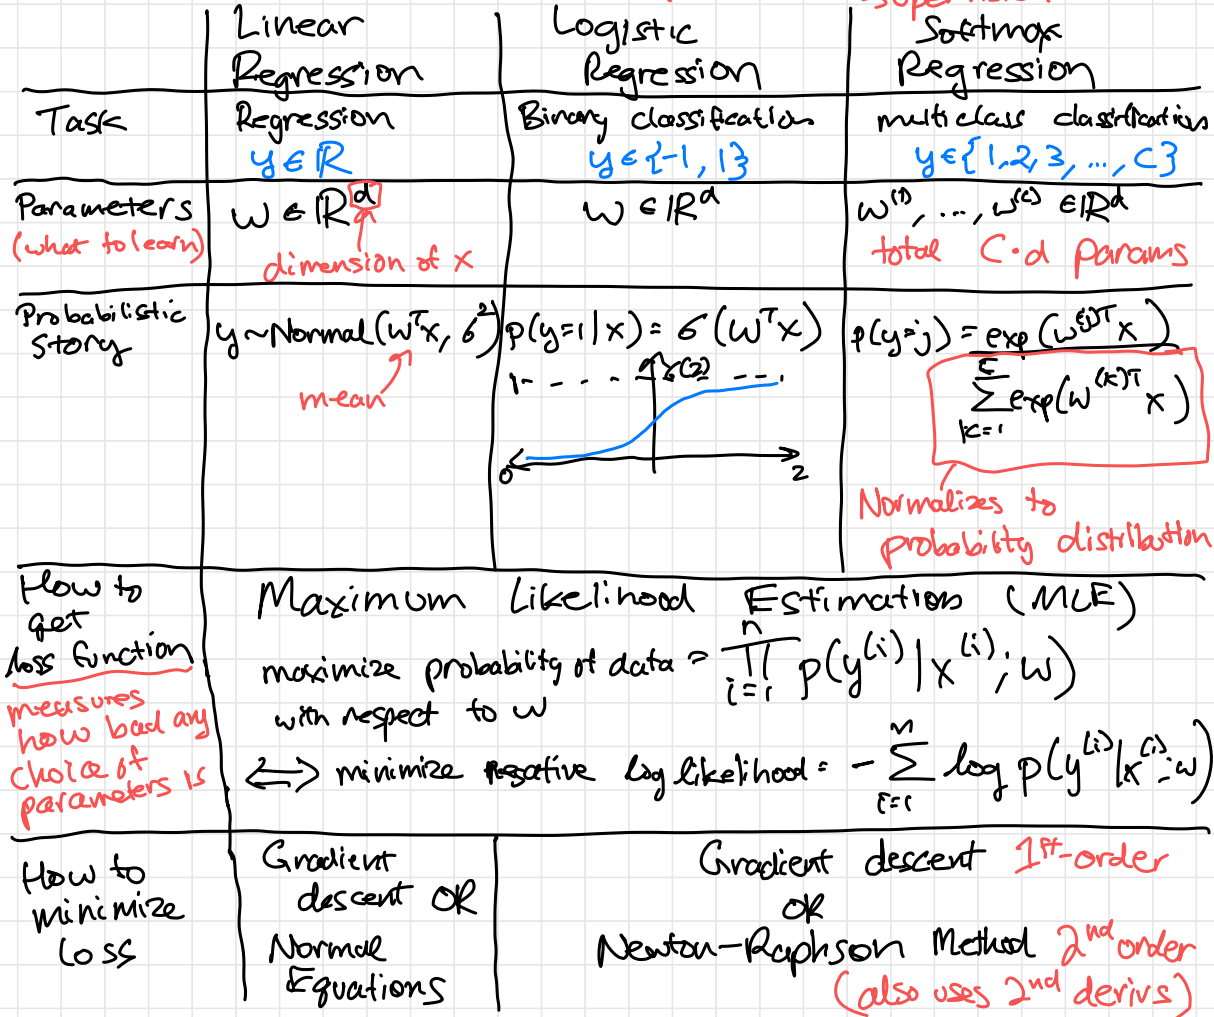 Linear
Regression
Logistic
Regression
Softmax
Regression
Task
Regression
y ∈ ℝ
Binary classification
y ∈ {-1, 1}
multiclass classification
y ∈ {1, 2, 3, ..., C}
Parameters
(what to learn)
w ∈ ℝ^d
dimension of x
w ∈ ℝ^d
w^(1), ..., w^(C) ∈ ℝ^d
total C·d params
Probabilistic
Story
y ~ Normal(w^T x, σ²)
mean
p(y=1 | x) = σ(w^T x)
1
σ(z)
0
z
p(y=j) = exp(w^(j)T x)
∑_{k=1}^{C} exp(w^(k)T x)
Normalizes to
probability distribution
How to
get
loss function
measures
how bad any
choice of
parameters is
Maximum Likelihood Estimation (MLE)
maximize probability of data = ∏_{i=1}^{n} p(y^(i) | x^(i); w)
with respect to w
⟺ minimize negative log likelihood = - ∑_{i=1}^{n} log p(y^(i) | x^(i); w)
How to
minimize
loss
Gradient
descent OR
Normal
Equations
Gradient descent 1st-order
OR
Newton-Raphson Method 2nd order
(also uses 2nd derivs)